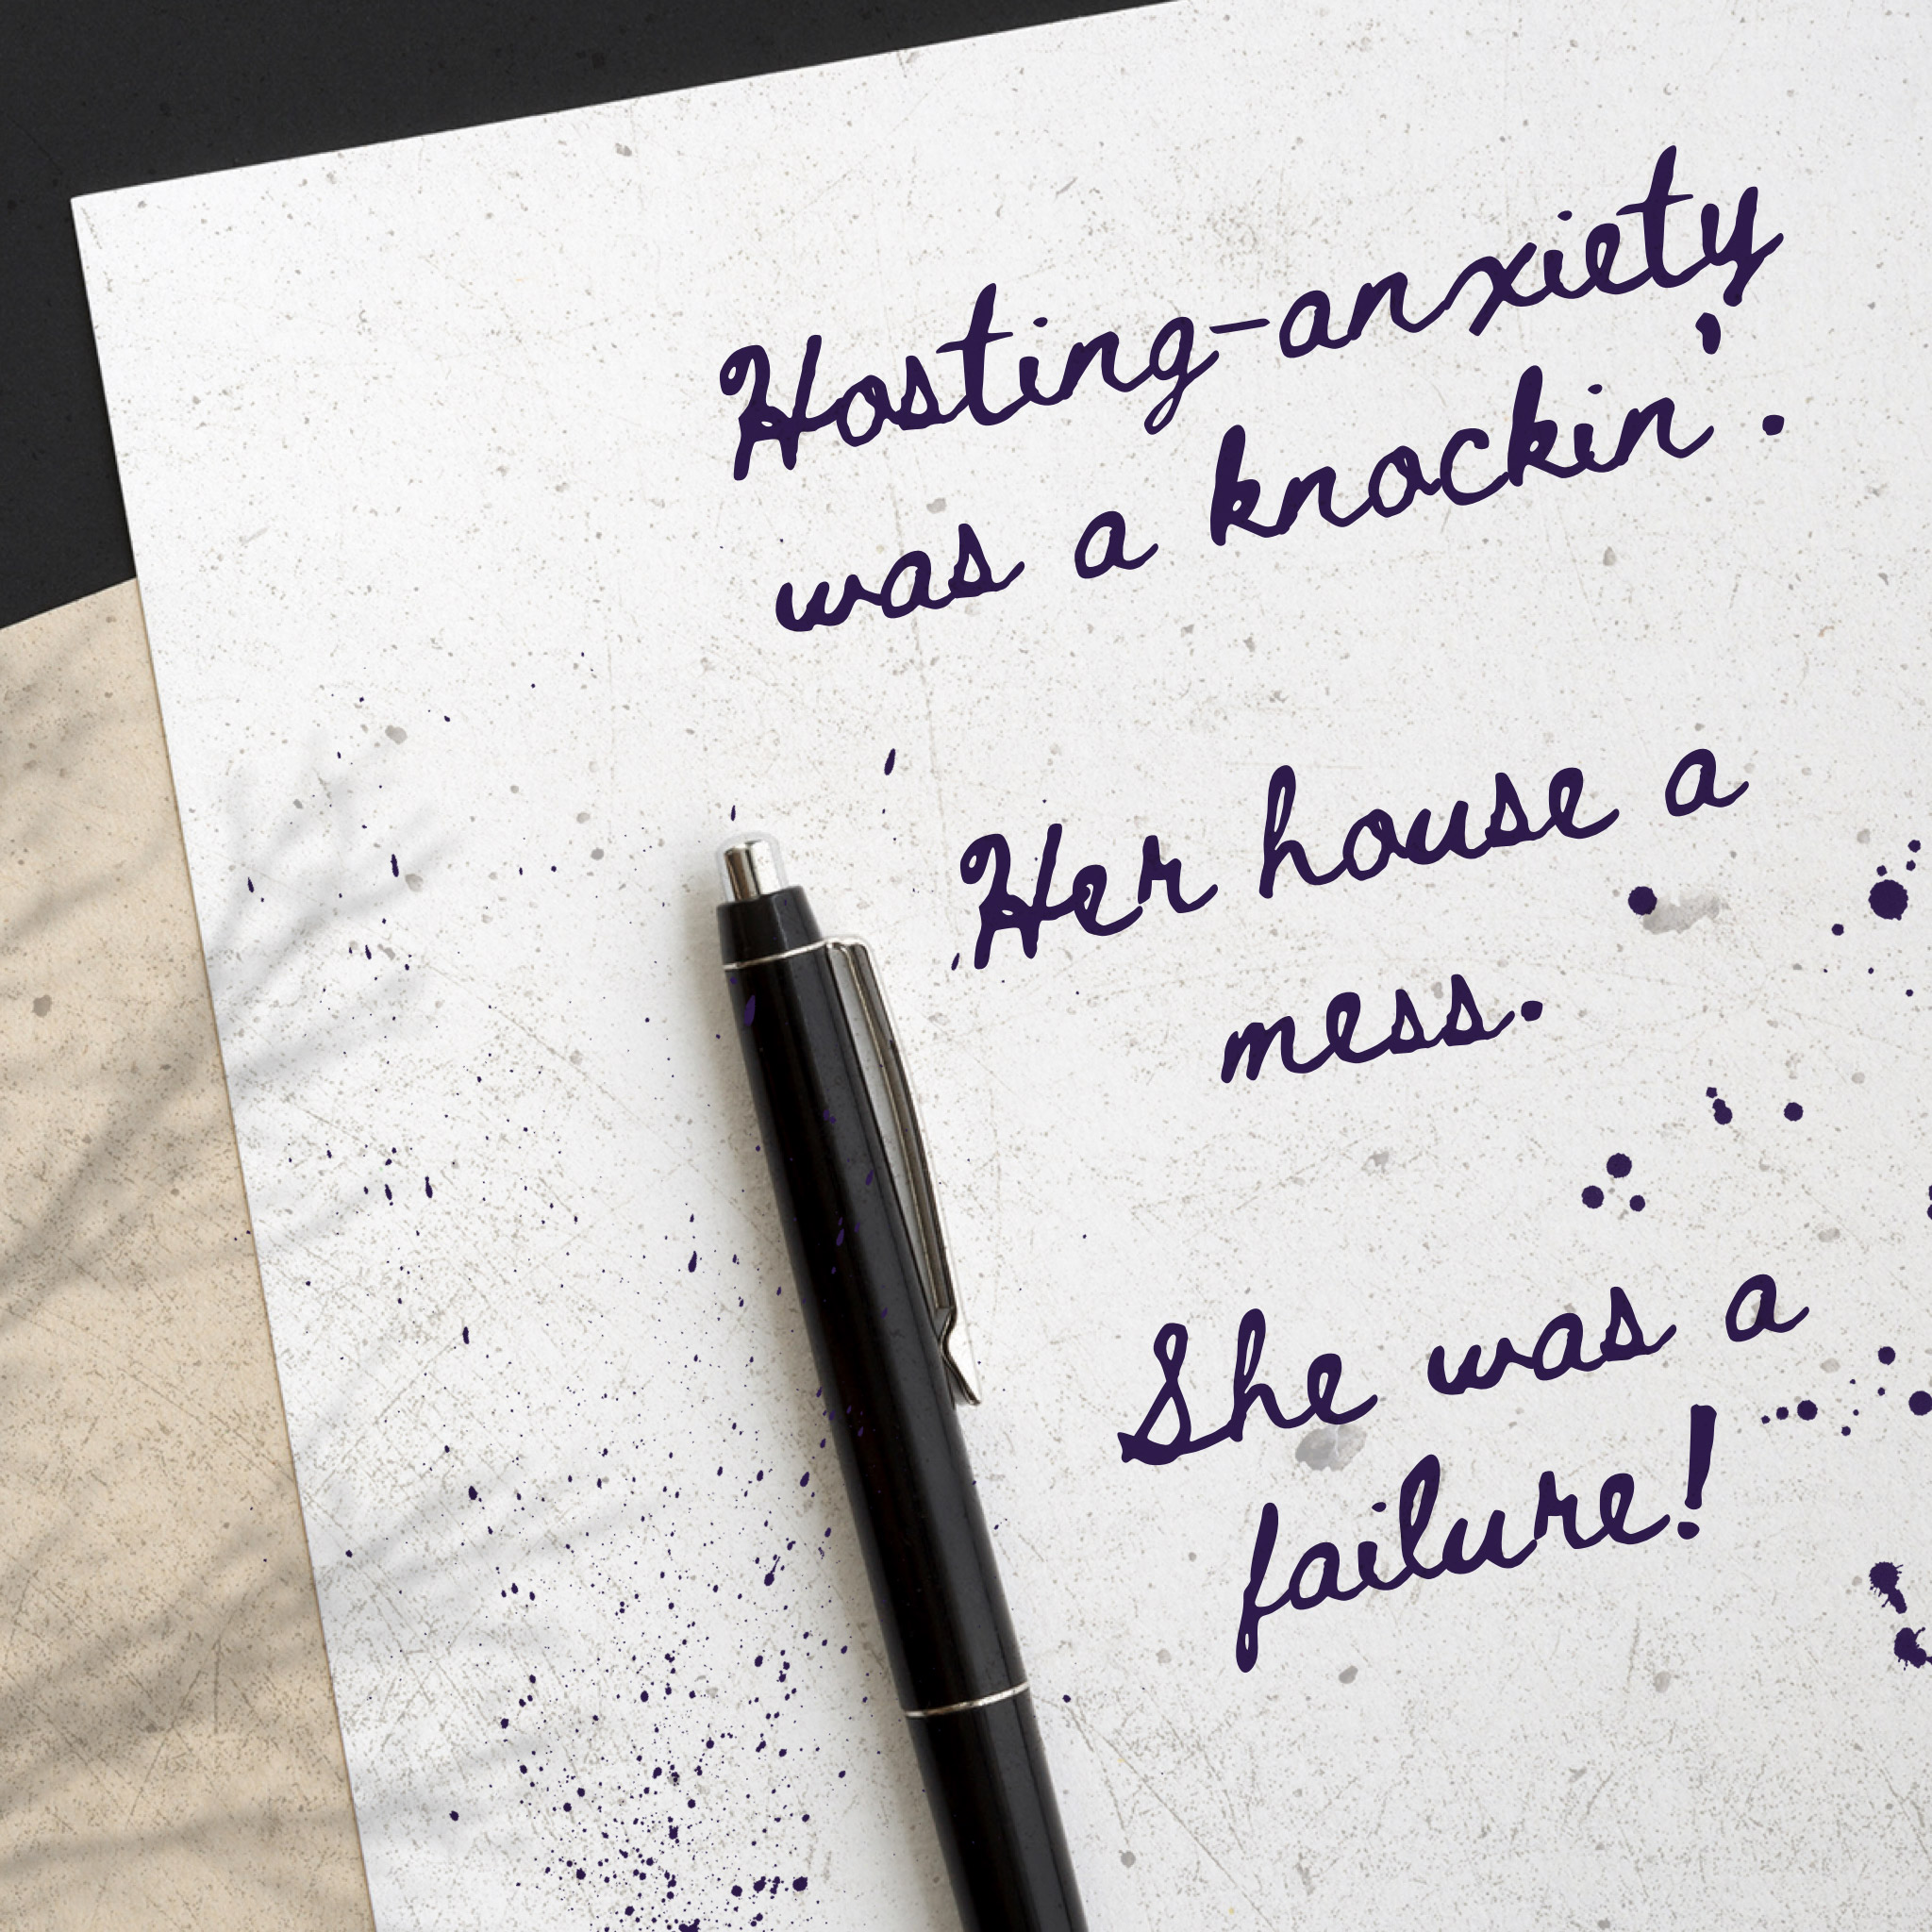 Hosting-anxiety
was a knockin'.
Her house a
mess.
She was a
failure!